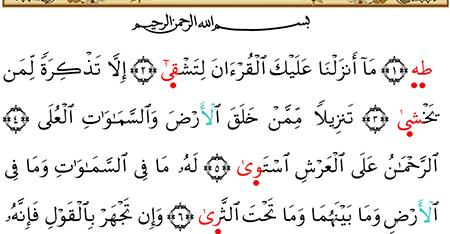 بِسْمِ اللَّهِ الرَّحْمَٰنِ الرَّحِيمِ
طه ﴿١﴾ مَآ أَنزَلْنَا عَلَيْكَ ٱلْقُرْءَانَ لِتَشْقَىٰٓ ﴿٢﴾ إِلَّا تَذْكِرَةً لِّمَن
يَخْشَىٰ ﴿٣﴾ تَنزِيلًا مِّمَّنْ خَلَقَ ٱلْأَرْضَ وَٱلسَّمَٰوَٰتِ ٱلْعُلَى ﴿٤﴾
ٱلرَّحْمَٰنُ عَلَى ٱلْعَرْشِ ٱسْتَوَىٰ ﴿٥﴾ لَهُۥ مَا فِى ٱلسَّمَٰوَٰتِ وَمَا فِى
ٱلْأَرْضِ وَمَا بَيْنَهُمَا وَمَا تَحْتَ ٱلثَّرَىٰ ﴿٦﴾ وَإِن تَجْهَرْ بِٱلْقَوْلِ فَإِنَّهُۥ